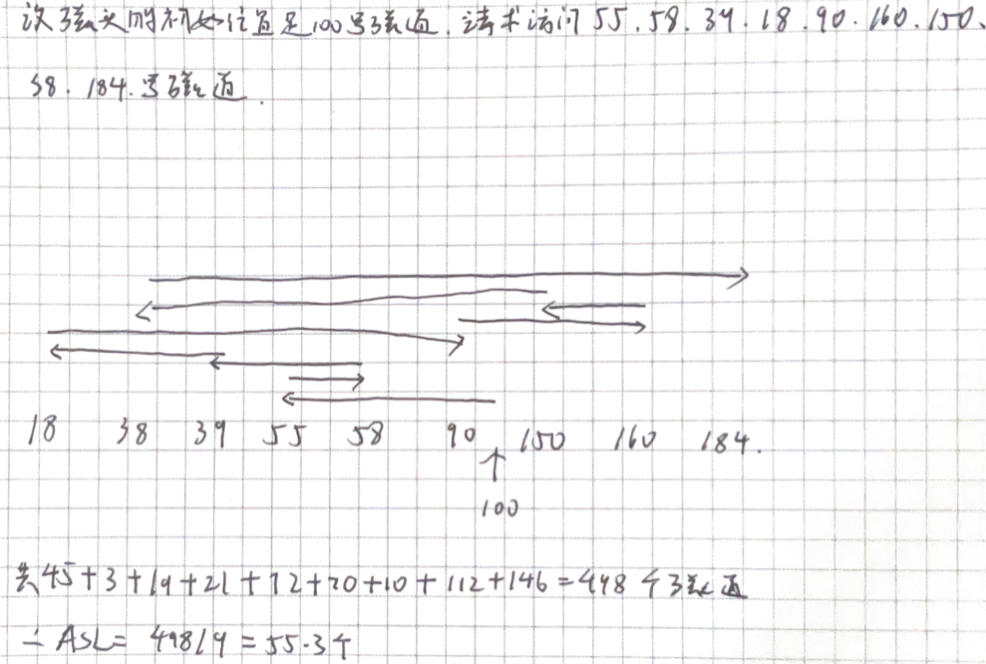 设磁头的初始位置是100号磁道,请求访问55.58.39.18.90.160.150、
38.184.号磁道.
18 38 39 55 58 90 150 160 184.
↑
100
共45+3+19+21+72+70+10+112+146=498个磁道
∴ ASL= 498/9=55.3个